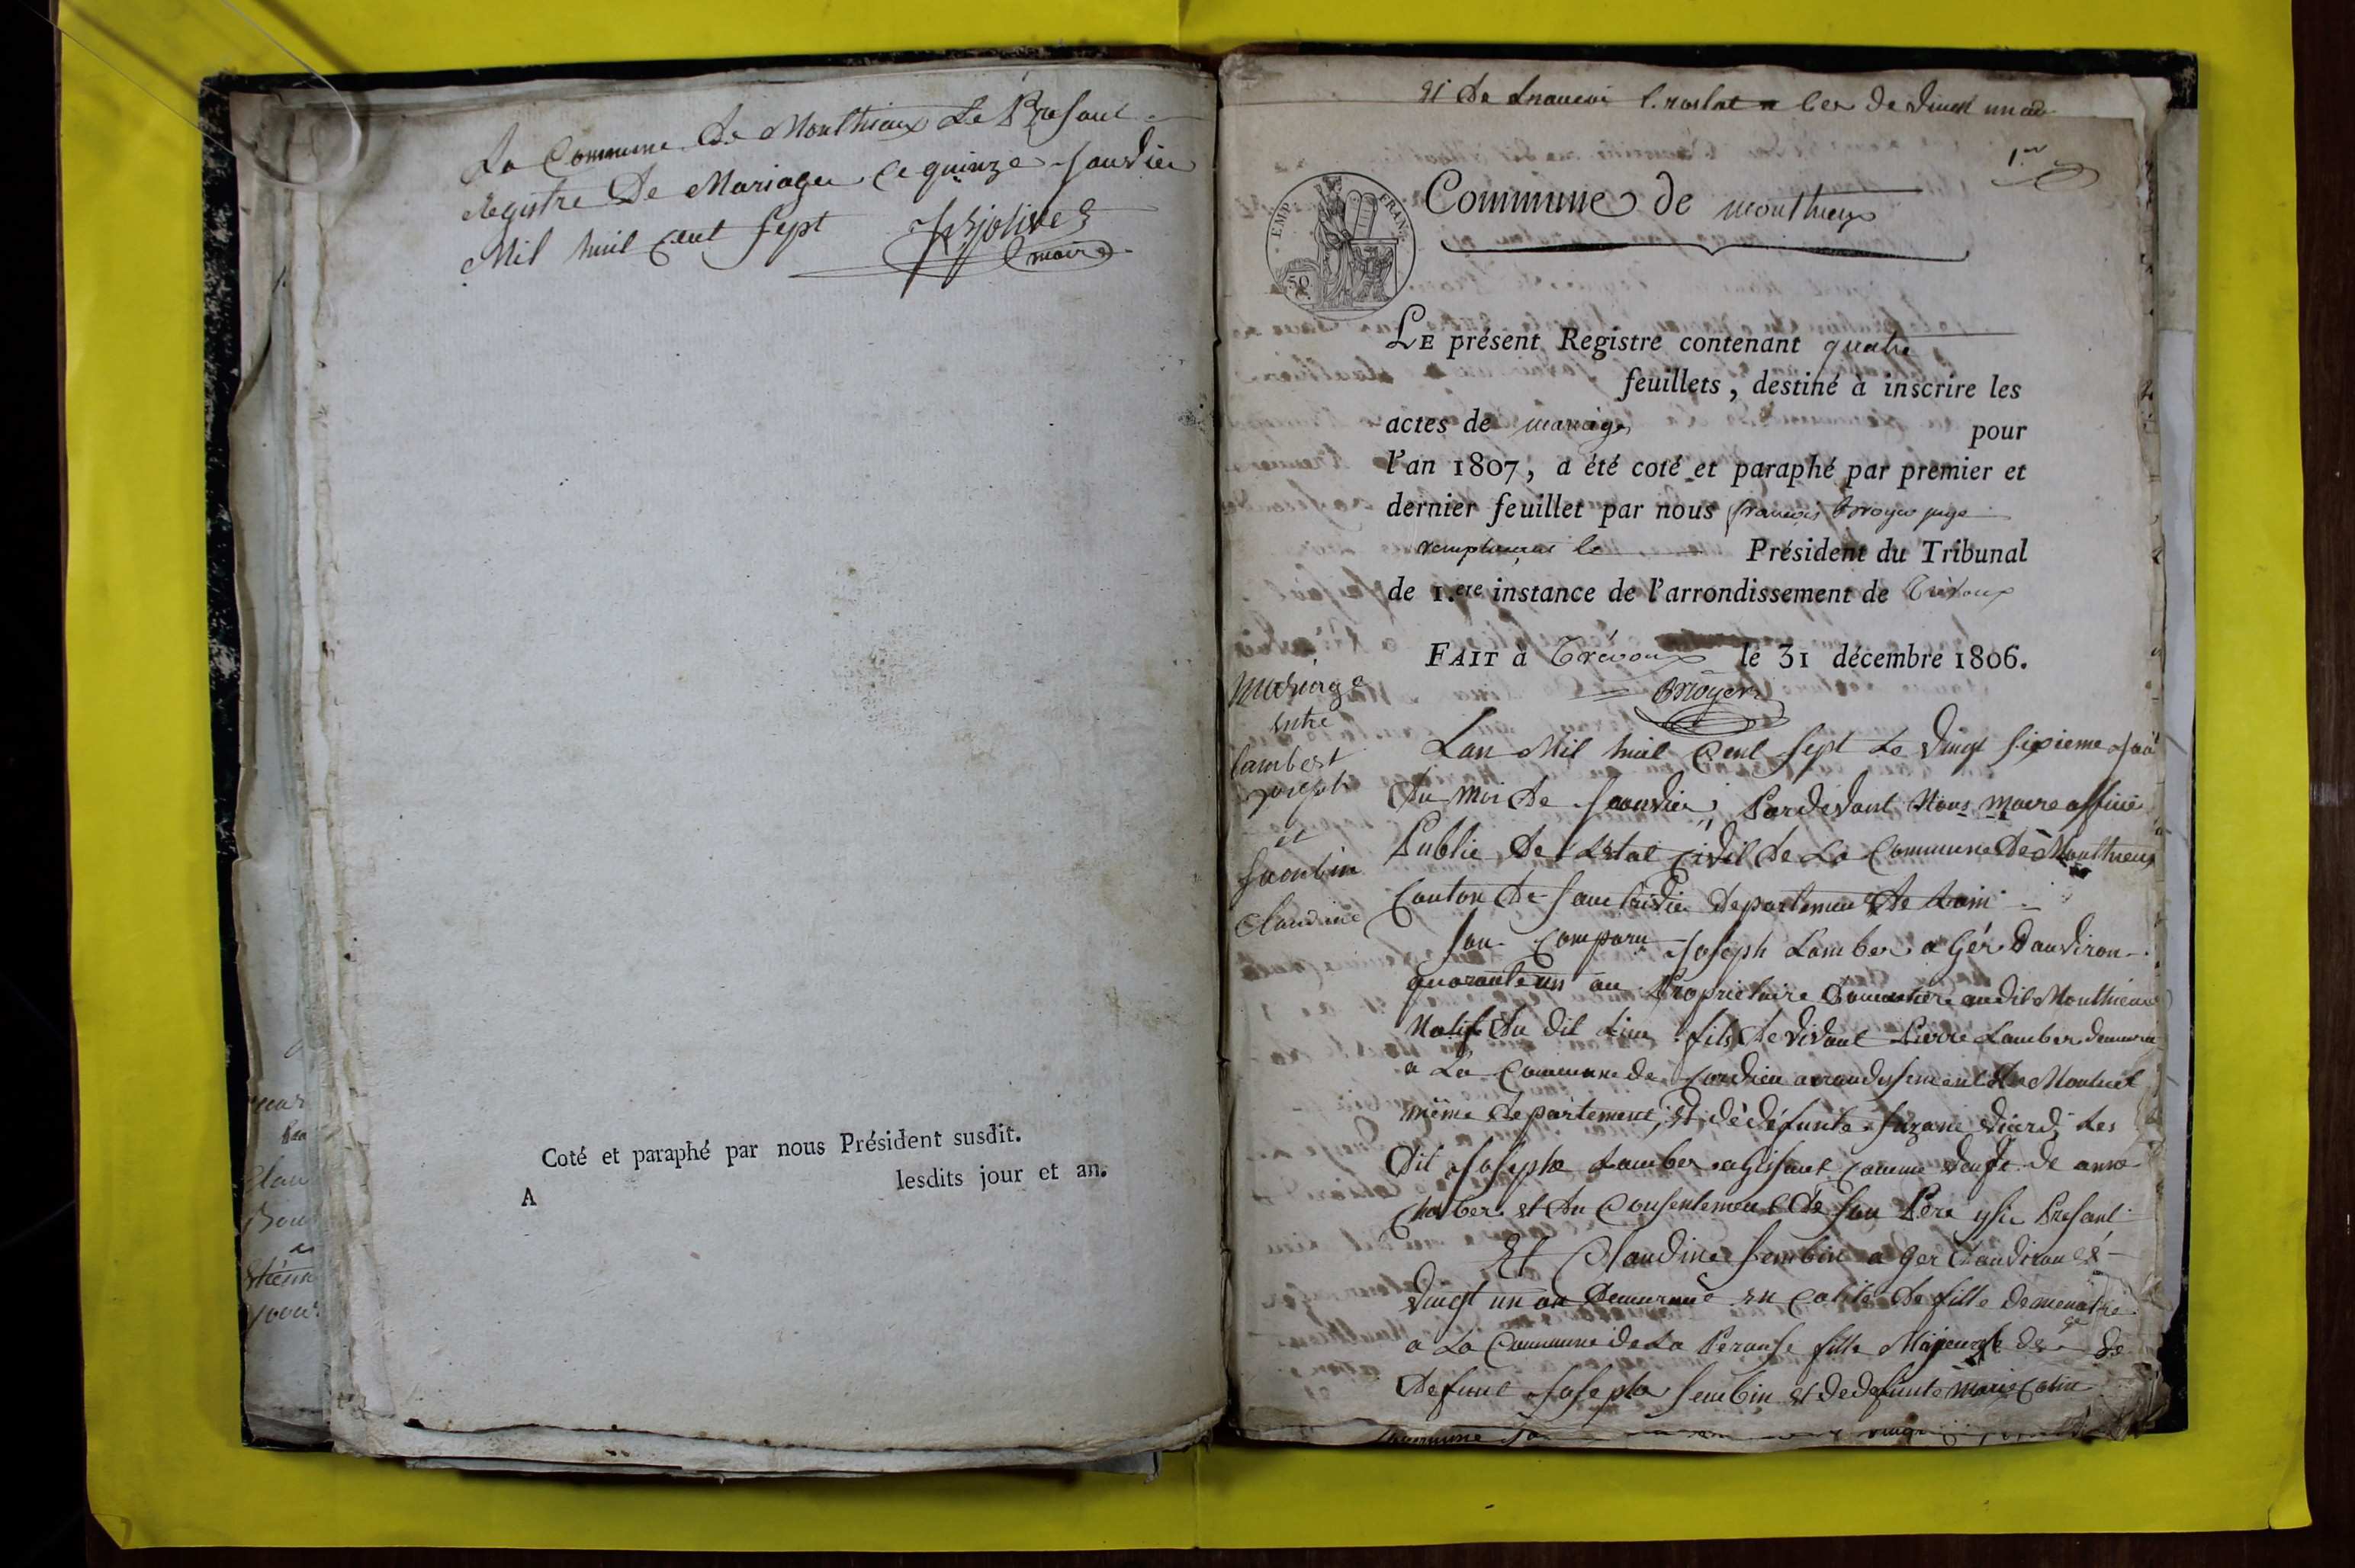 La Commune de Monthieux Le Présent
Registre De Mariage ce quinze Janvier
Mil huit Cent Sept
maire
Coté et paraphé par nous Président susdit.
A lesdits jour et an.
1.er
EMP. FRAN.
50
Commune de monthieux
LE présent Registre contenant quatre
feuillets, destiné à inscrire les
actes de mariages pour
l'an 1807, a été coté et paraphé par premier et
dernier feuillet par nous françois Brroyer juge
remplaçant le Président du Tribunal
de 1.ere instance de l'arrondissement de Trévoux
FAIT à Trévoux le 31 décembre 1806.
Brroyer
Mariage
entre
lambert
joseph
et
Claudine
Lan Mil huit Cent Sept Le Vingt Sixieme
du Moi de Janvier, Pardevant Nous maire officier
Public De Letat Civil de La Commune De Monthieux
Canton De departement De Lain
Son Comparu Joseph Lamber a Gér Danviron
quarante un an Proprietaire audit Monthieux
Natif du dit Lieu fils De Vivant Pierre Lamber
a La Commune de Cordieu arrondissement De Montuel
même departement, et de défunte Suzane Les
Dit Joseph Lamber agissant Comme veufe de anne
et du Consentement De Son Pere ysi Présent
Et Claudine a Ger Danviron
vingt un an Demeurant en calité De fille
a La Commune de La Perouse fille Majeure de
Defunt Joseph et de defunte Marie